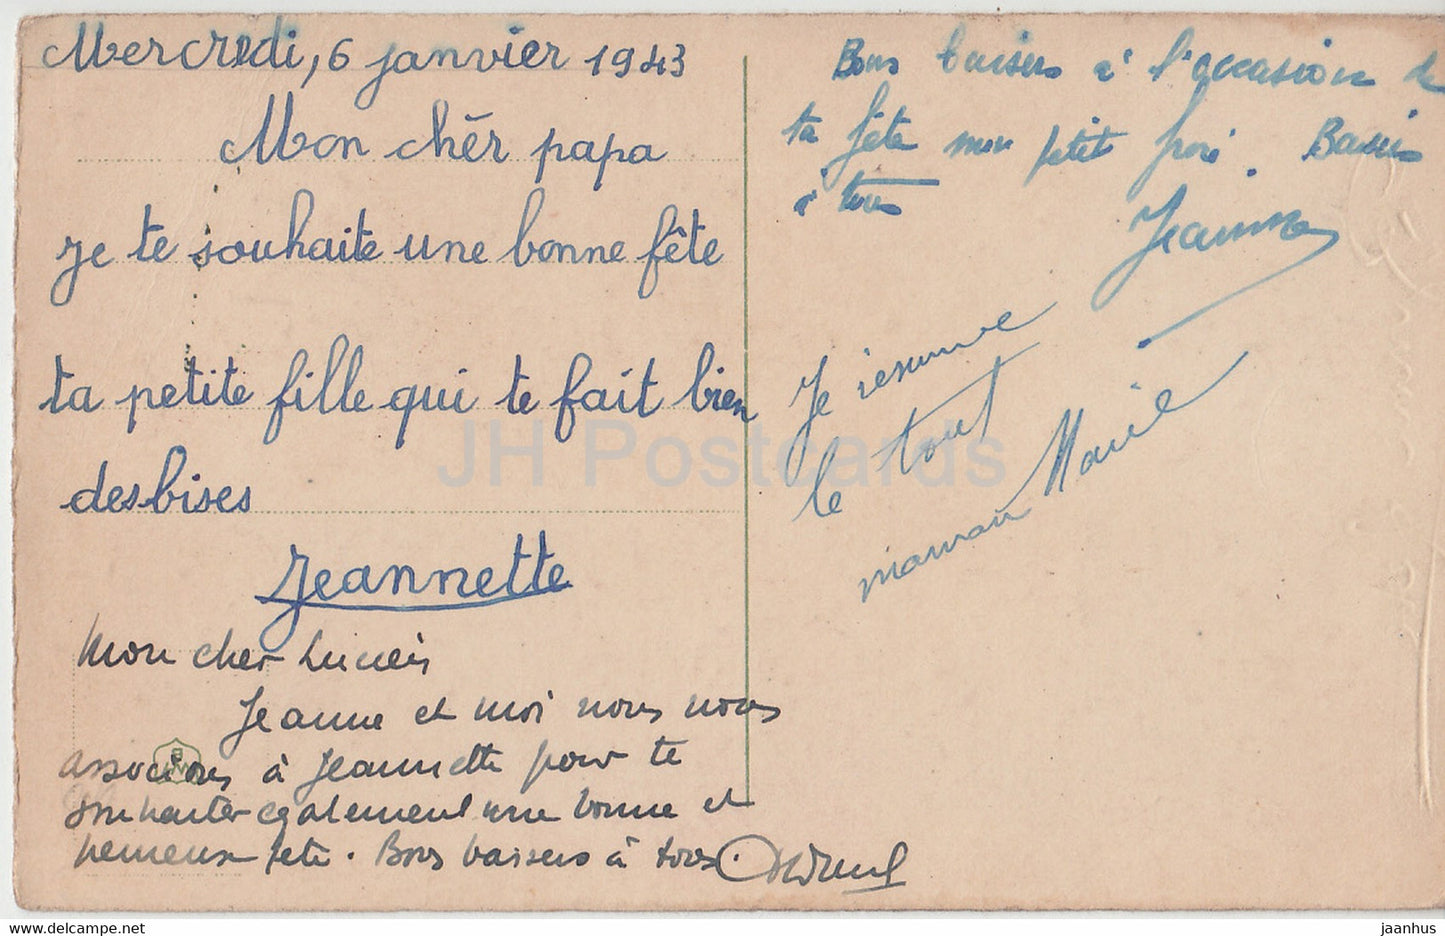 Mercredi, 6 janvier 1943
Mon chèr papa
je te souhaite une bonne fête
ta petite fille qui te fait bien
des bises
Jeannette
Mon cher Lucien
Jeanne et moi nous nous
associons à Jeannette pour te
souhaiter egalement une bonne et
heureuse fete. Bons baisers à tous.
Bons baisers à l'occasion de
ta fête mon petit frère. Baisers
à tous
Jeanne
Je résume
le tout
maman Marie
JH Postcards
jaanhus